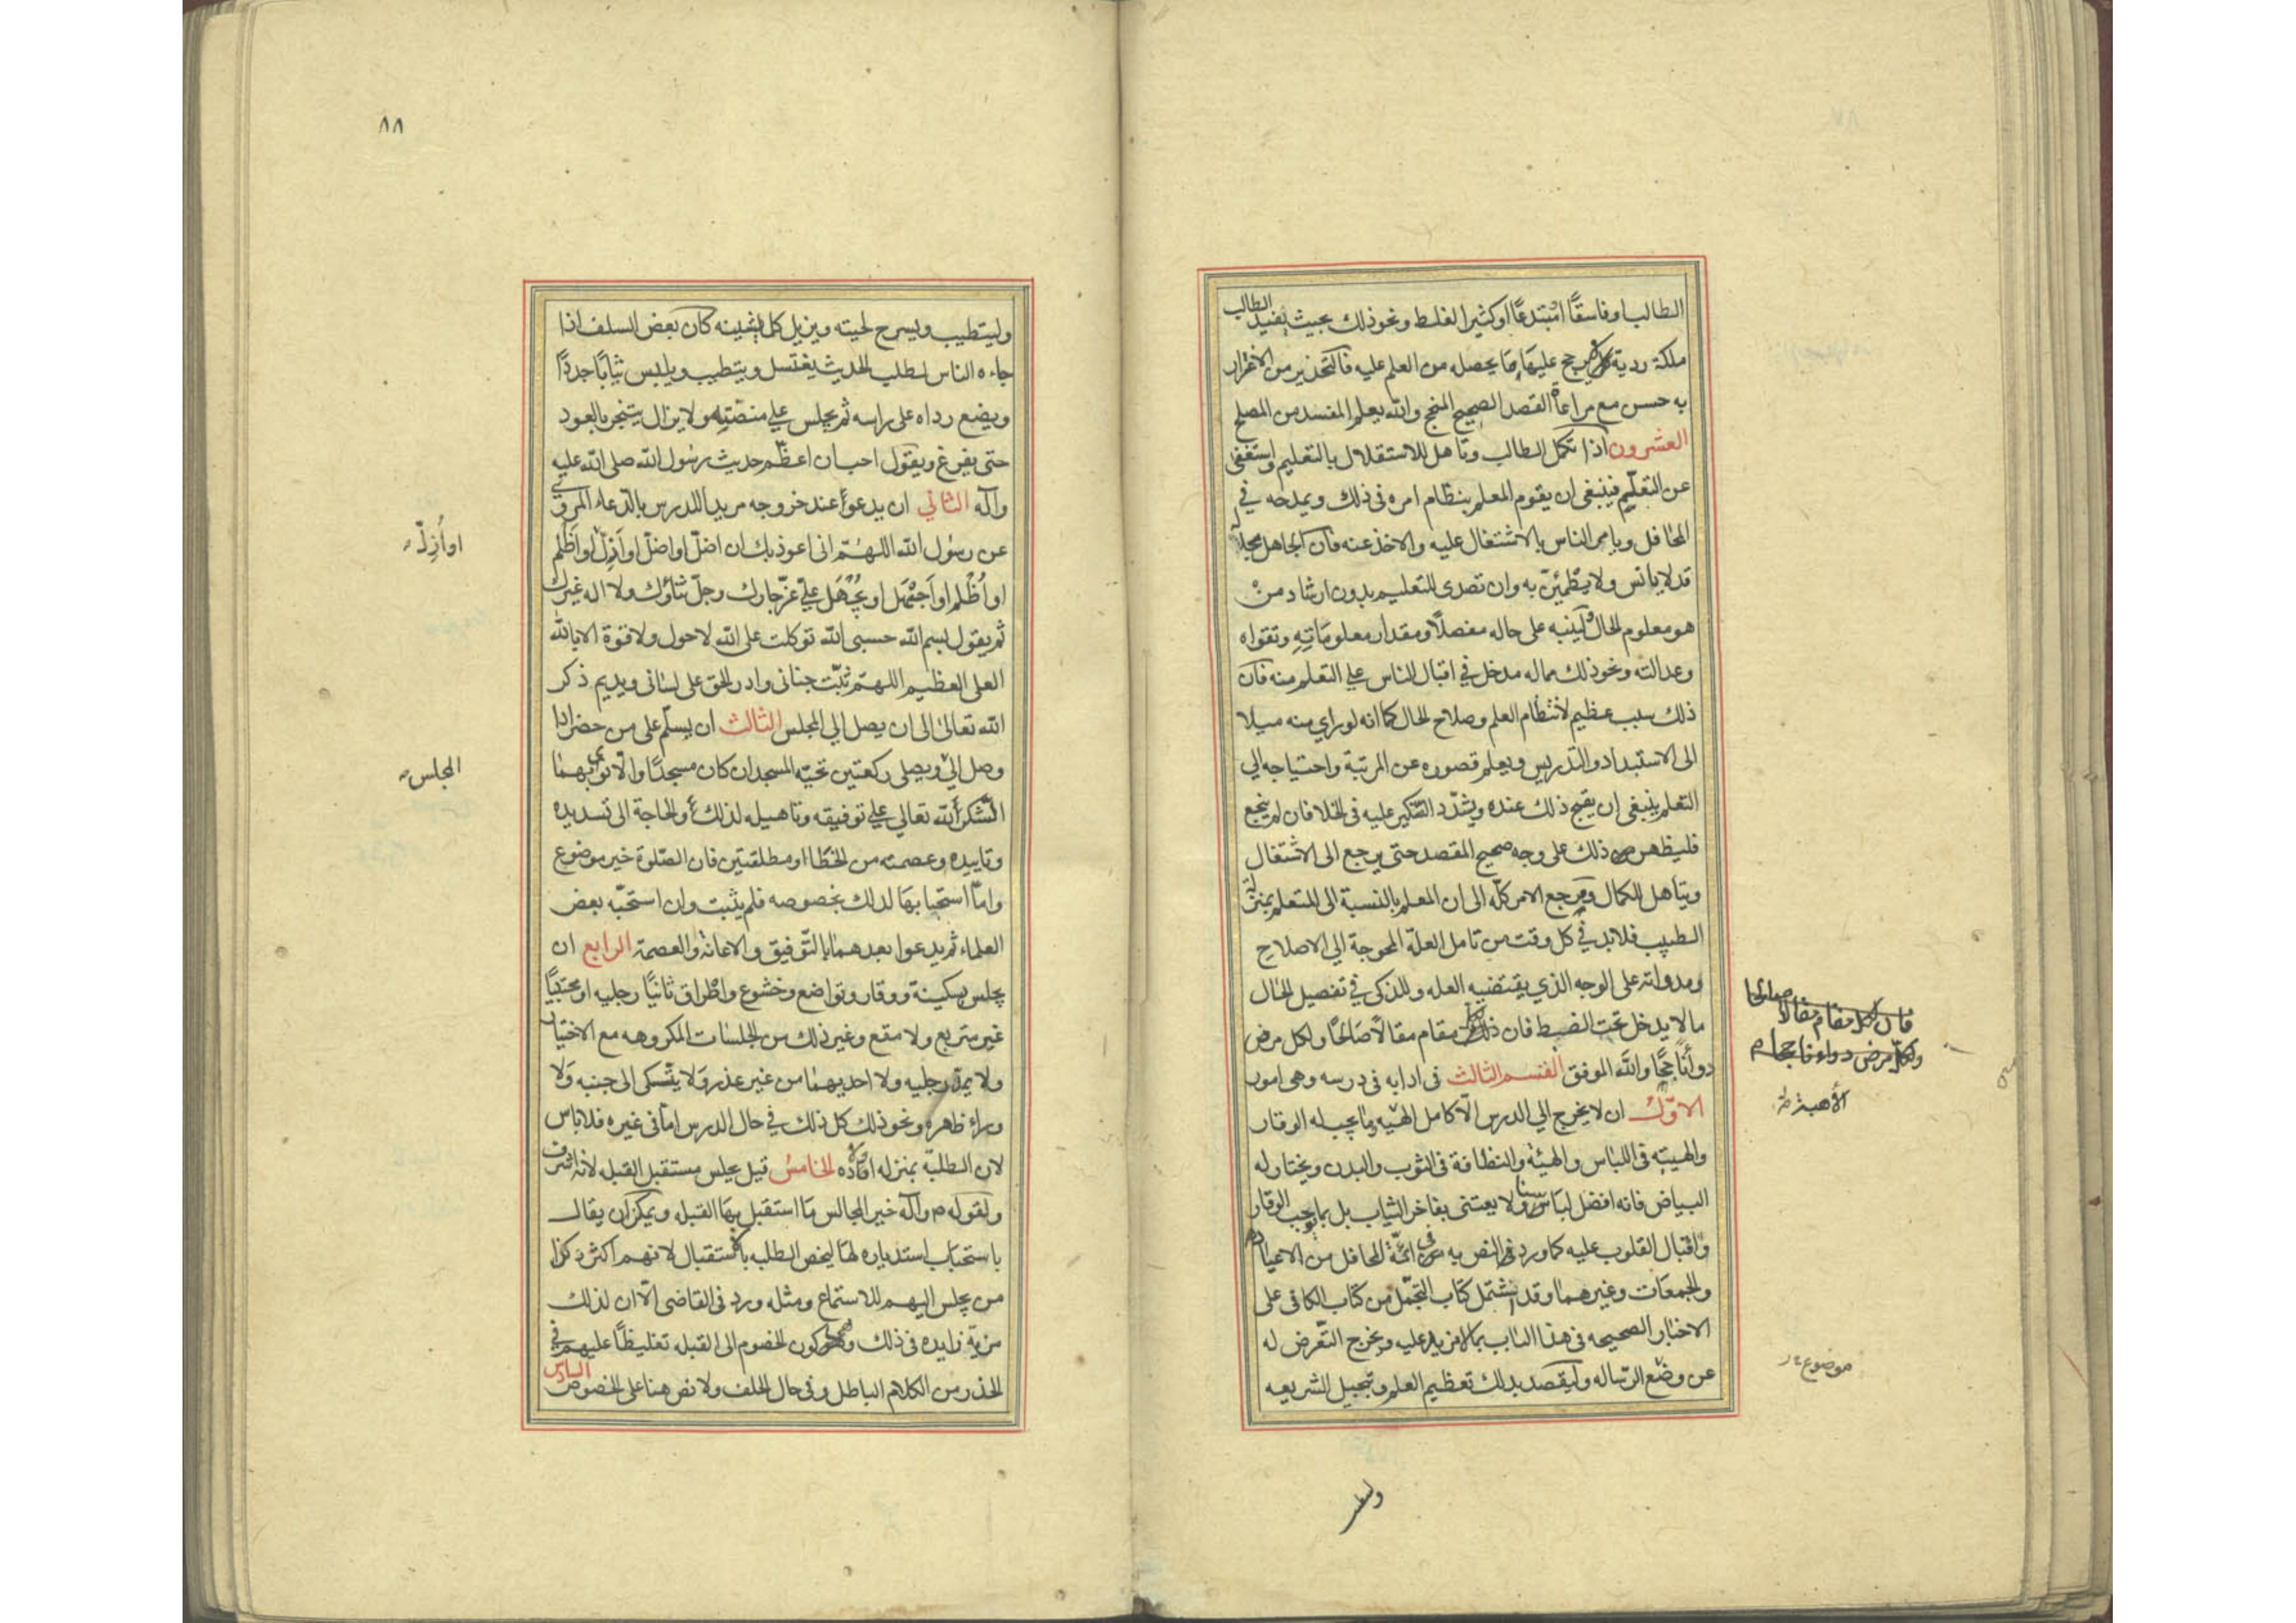 الطالب او فاسقًا او مبتدعًا او كثير الغلط ونحو ذلك بحيث يفيد الطالب
ملكة ردية لا يرجح عليها ما يحصل من العلم عليه فالتحذير من الاغترار
به حسن مع مراعاة القصد الصحيح المنجح والله يعلم المفسد من المصلح
العشرون اذا تكمل الطالب وتاهل للاستقلال بالتعليم واستغنى
عن التعلّم فينبغي ان يقوم المعلم بنظام امره في ذلك ويمدحه في
المحافل ويامر الناس بالاشتغال عليه والاخذ عنه فان الجاهل بحاله
قد لا يانس ولا يطمئنّ به وان تصدى للتعليم بدون ارشاد من
هو معلوم الحال ولينبه على حاله مفصلًا ومقدار معلوماته وتقواه
وعدالته ونحو ذلك مما له مدخل في اقبال الناس علي التعلم منه فان
ذلك سبب عظيم لانتظام العلم وصلاح الحال كما انه لو راي منه ميلا
الى الاستبداد والتدريس ويعلم قصوره عن المرتبة واحتياجه الي
التعلم ينبغي ان يقبح ذلك عنده ويشدّد النّكير عليه في الخلا فان لم ينجع
فليظهر ذلك على وجه صحيح المقصد حتى يرجع الى الاشتغال
ويتاهل للكمال ومرجع الامر كلّه الى ان المعلم بالنسبة الى المتعلم بمنزلة
الطبيب فلابد في كل وقت من تامل العلّة المحوجة الي الاصلاح
ومدواته على الوجه الذي يقتضيه العله وللذكي في تفصيل الحال
ما لا يدخل تحت الضبط فان لكل مقام مقالًا صالحًا ولكل مرض
دواءً ناجحًا والله الموفق القسم الثالث في ادابه في درسه وهي امور
الاوّل ان لا يخرج الي الدرس الّا كامل الهيّه وما يجب له الوقار
والهيبة في اللباس والهيئة والنظافة في الثوب والبدن ويختار له
البياض فانه افضل لباسنا ولا يعتنى بفاخر الثياب بل بما يوجب الوقار
واقبال القلوب عليه كما ورد في النص به في ائمّة المحافل من الاعياد
والجمعات وغيرهما وقد اشتمل كتاب التجمّل من كتاب الكافى على
الاخبار الصحيحه في هذا الباب بما لا مزيد عليه ويخرج التّعرض له
عن وضع الرّساله وليقصد بذلك تعظيم العلم وتبجيل الشريعه
فان لكل مقام مقالا صالحا
ولكلّ مرض دواء ناجحا
الأهبة
موضوع
٨٨
وليتطيب ويسرح لحيته ويزيل كل ما يشينه كان بعض السلف اذا
جاءه الناس لطلب الحديث يغتسل ويتطيب ويلبس ثيابًا جددًا
ويضع رداه على راسه ثم يجلس علي منصّته ولا يزال يتبخر بالعود
حتى يفرغ ويقول احب ان اعظّم حديث رسول الله صلى الله عليه
وآله الثاني ان يدعو عند خروجه مريدا للدرس بالدّعاء المروي
عن رسول الله اللهمّ انى اعوذ بك ان اضلّ او اضلّ او اَزِلّ او اَظْلِم
او اُظْلَم او اَجْهَل او يُجْهَل عليّ عزّ جارك وجلّ ثناؤك ولا اله غيرك
ثم يقول بسم الله حسبي الله توكلت على الله لا حول ولا قوة الا بالله
العلى العظيم اللهمّ ثبّت جنانى وادر الحق على لسانى ويديم ذكر
الله تعالى الى ان يصل الي المجلس الثالث ان يسلّم على من حضر اذا
وصل اليْ ويصلى ركعتين تحيّة المسجد ان كان مسجدًا والّا نوى بهما
الشّكر لله تعالي علي توفيقه وتاهيله لذلك أو الحاجة الى تسديده
وتاييده وعصمته من الخطا او مطلقتين فان الصّلوة خير موضوع
وامّا استحبابها لذلك بخصوصه فلم يثبت وان استحبّه بعض
العلماء ثم يدعوا بعدهما بالتّوفيق والاعانة والعصمة الرابع ان
يجلس بسكينة ووقار وتواضع وخشوع واطراق ثانيًا رجليه او محتبيًا
غير متربع ولا مقع وغير ذلك من الجلسات المكروهه مع الاختيار
ولا يمدّ رجليه ولا احديهما من غير عذر ولا يتّكى الى جنبه ولا
وراء ظهره ونحو ذلك كل ذلك في حال الدرس امّا في غيره فلا باس
لان الطلبة بمنزله اولاده الخامسُ قيل يجلس مستقبل القبله لانه اشرف
ولقوله م وآله خير المجالس ما استقبل بها القبله ويمكن ان يقال
باستحباب استدباره لها ليخص الطلبه بالاستقبال لانهم اكثر وكذا
من يجلس اليهم للاستماع ومثله ورد في القاضى الّا ان لذلك
مزية زايده في ذلك وهو كون الخصوم الى القبله تغليظًا عليهم في
الحذر من الكلام الباطل وفي حال الحلف ولا نص هنا على الخصوص السادس
او أُزِلّ
المجلس